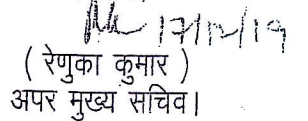 17/12/19
( रेणुका कुमार )
अपर मुख्य सचिव।